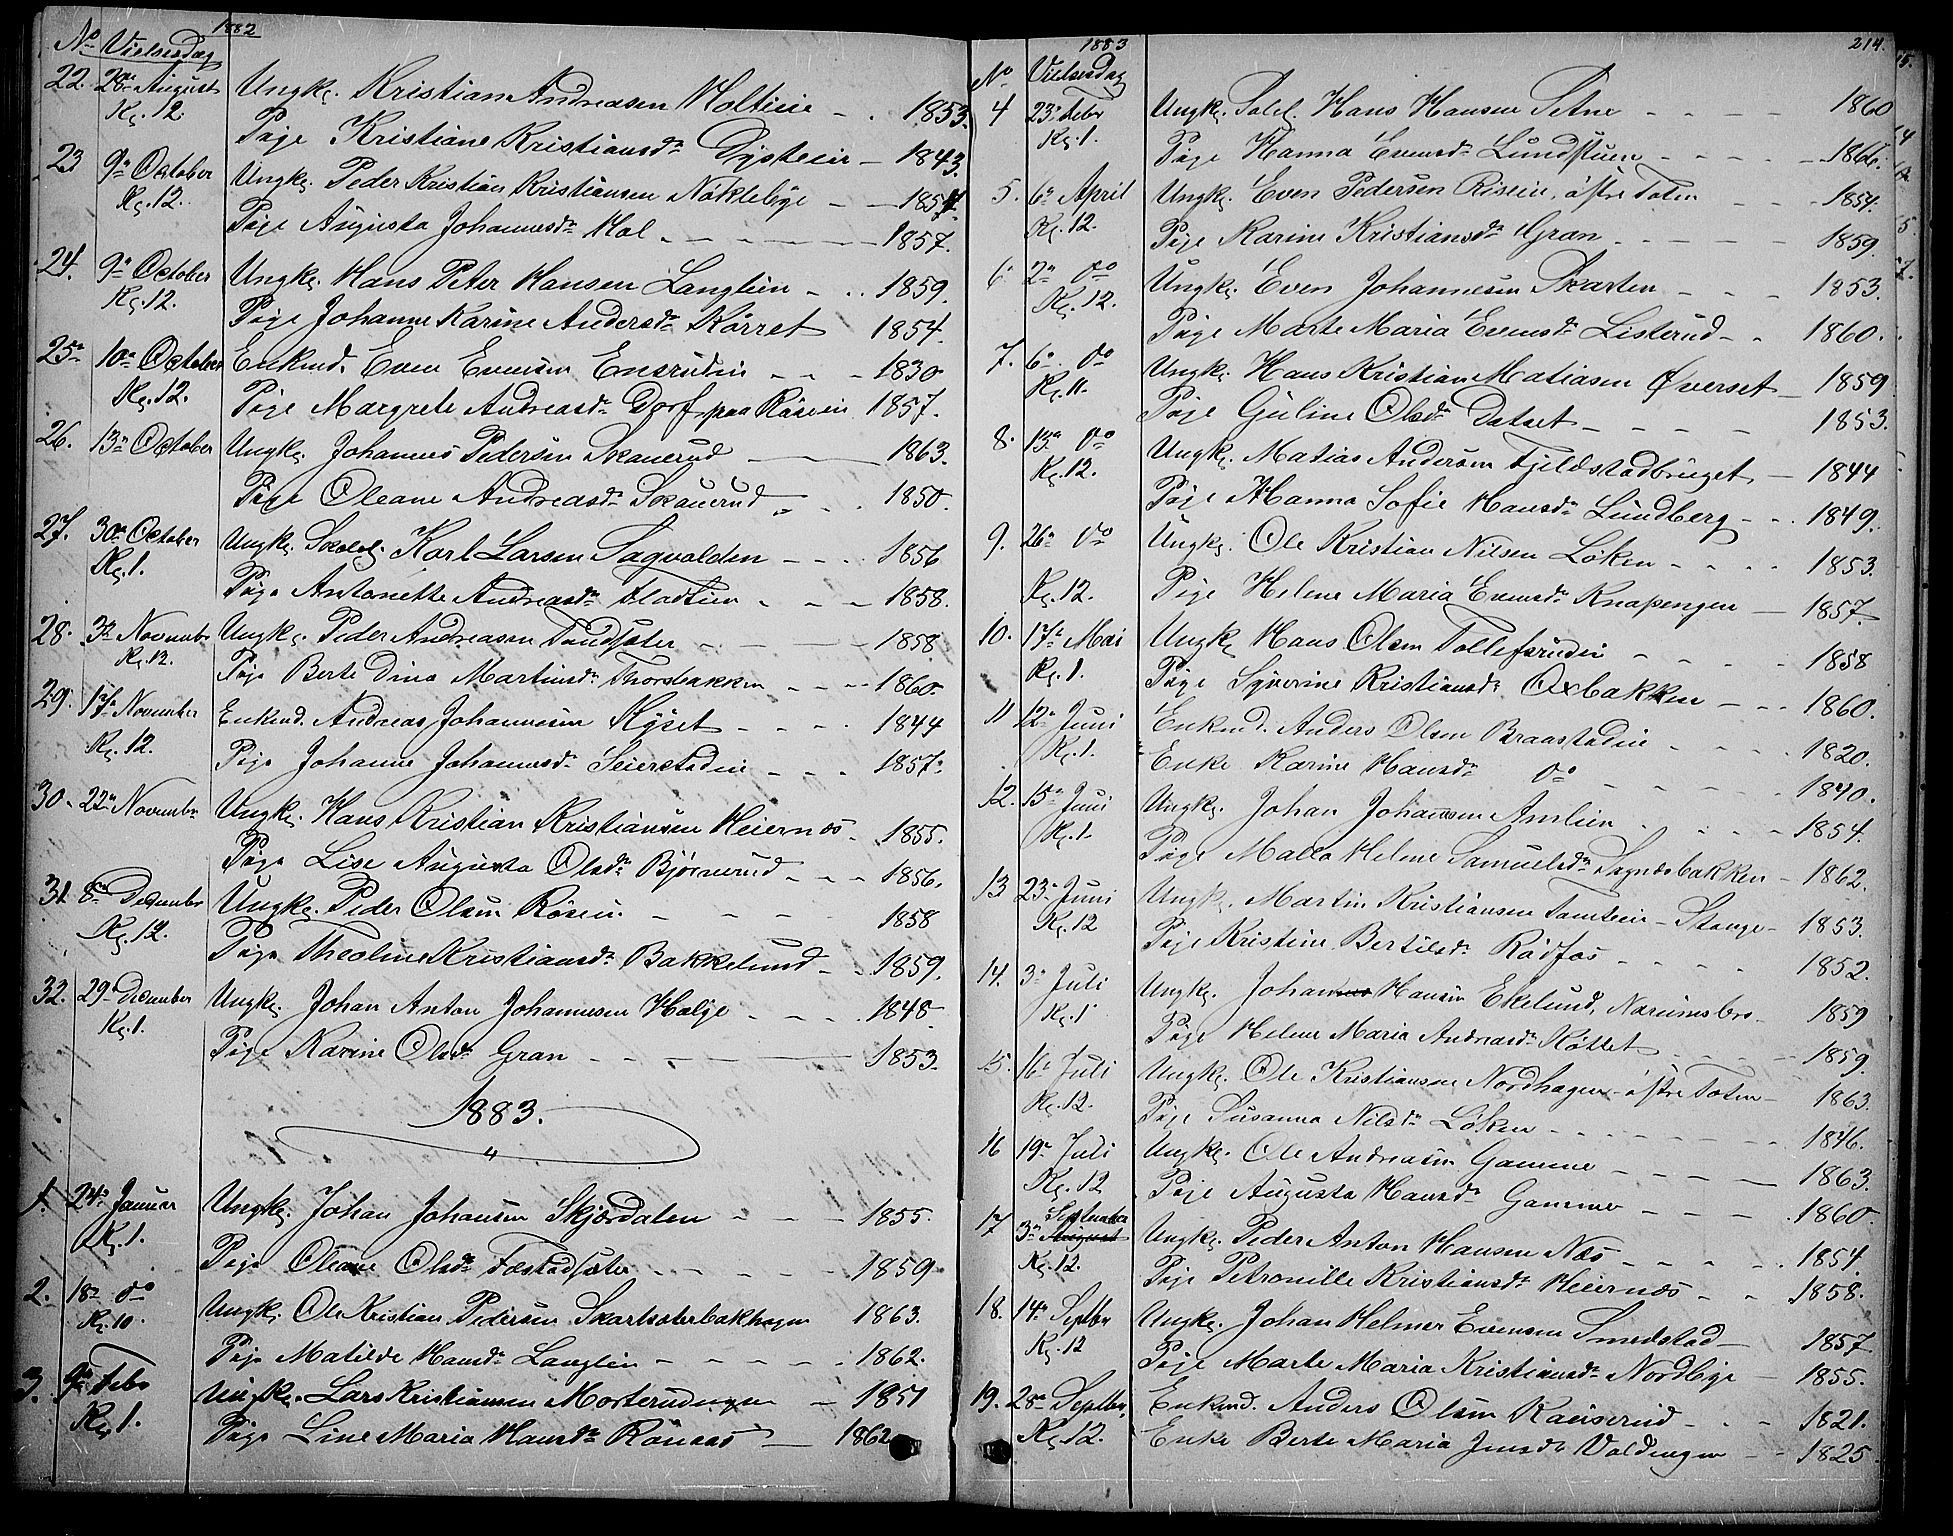 1882
No Vielsesdag
22. 28de August Ungk. Kristian Andreasen Molteie - . 1853.
Kl. 12. Pige Kristiane Kristiansdr Dysteeie - 1843.
23 9de October Ungk. Peder Kristian Kristiansen Nøklebye - - 1854.
Kl. 12. Pige Augusta Johannesdr Hol - - - - 1857.
24. 9de October Ungk. Hans Peter Hansen Langlien - . . 1859.
Kl. 12. Pige Johanne Karine Andersdr Kørret 1854.
25de 10de October Enkmd. Even Evensen Ensrudeie - - - 1830
Kl. 12. Pige Margrete Andreasdr Dorf paa Røseeie 1857.
26. 13de October Ungk. Johannes Pedersen Skauerud - 1863.
Pige Oleane Andreasdr Skauerud - . . 1850.
27. 30de October Ungk. Skolel. Karl Larsen Sagvolden - - . . 1856
Kl. 1. Pige Antonette Andreasdr Fladlien - - - 1858.
28. 3de Novembr Ungk. Peder Andreasen Tandsæter - - - 1858
Kl. 12. Pige Berte Dina Martinusdr Thorsbakken - - - 1860.
29. 17de November Enkmd. Andreas Johannesen Hÿset - - . 1844
Kl. 12. Pige Johanne Johannesdr Seierstadeie - - . 1857.
30. 22de Novembr Ungk. Hans Kristian Kristiansen Heiernæs - 1855.
Pige Lise Augusta Olsdr Bjørnerud - - - 1856.
31. 8de Decembr Ungk. Peder Olsen Røseie - - - - 1858
Kl. 12. Pige Theoline Kristiansdr Bakkelund - 1859.
32. 29de December Ungk. Johan Anton Johannesen Helge - - - . 1848
Kl. 1. Pige Karine Olsdr Gran - - - - 1853.
1883.
1. 24de Januar Ungk. Johan Johansen Skjærdalen - - - 1855.
Kl. 1. Pige Oleane Olsdr Fæstadsæter - - - - - 1859
2. 18de do Ungk. Ole Kristian Pedersen Skartsæterbakhagen 1863.
Kl. 10. Pige Matilde Hansdr Langlien - - - - - 1862.
3. 9de Febr Ungk. Lars Kristiansen Morterudengen - 1851
Kl. 1. Pige Line Maria Hansdr Rønaas - 1862
1883
214.
No Vielsesdag
4 23de Febr Ungk. Hans Hansen Setne - - - - 1860
Kl. 1. Pige Hanna Evensdr Lundstuen - - - - - 1866.
5. 6de April Ungk. Even Pedersen Riseeie, østre Toten - - - 1854.
Kl. 12. Pige Karine Kristiansdr Gran - - - - - 1859.
6 2de do Ungk. Even Johannesen Skarten - - - 1853.
Kl. 12. Pige Marte Maria Evensdr Listerud - . 1860.
7. 6de do Ungk. Hans Kristian Matiasen Øverset - 1859
Kl. 11. Pige Guline Olsdr Dalset - - - - 1853.
8. 13de do Ungk. Matias Andersen Fjeldstadbruget - 1844
Kl. 12. Pige Hanna Sofie Hansdr Lundberg - - . 1849.
9. 26de do Ungk. Ole Kristian Nilsen Løken - - - . 1853.
Kl. 12. Pige Helene Maria Evensdr Knapengen - 1857.
10. 17de Mai Ungk. Hans Olsen Tollefsrudeie - - - - 1858
Kl. 1. Pige Syverine Kristiansdr Oxbakken - - - 1860.
11 12de Juni Enkmd. Anders Olsen Braastadeie - - - - 1820.
Kl. 1. Enke Karine Hansdr do - - - - - 1840.
12. 15de Juni Ungk. Johan Johansen Amlien - - - - 1854.
Kl. 1. Pige Malla Helene Samuelsdr Sognæsbakken - 1862.
13 23de Juni Ungk. Martin Kristiansen Tomteeie - Stange - 1853.
Kl. 12 Pige Kristine Bertilsdr Rødfos - - - - 1852.
14. 3de Juli Ungk. Johannes Hansen Ekelund, Narumsbro. 1859
Kl. 1 Pige Helene Maria Andreasdr Køllet - - - - 1859.
15. 16de Juli Ungk. Ole Kristiansen Nordhagen - østre Toten - 1863.
Kl. 12. Pige Susanna Nilsdr Løken - - - - - - 1846.
16 19de Juli Ungk. Ole Andreasen Gamme - - - - - 1863.
Kl. 12 Pige Augusta Hansdr Gamme - - - - . 1860.
17 3de August September Ungk. Peder Anton Hansen Næs - - - - . 1854.
Kl. 12. Pige Petronille Kristiansdr Heiernæs - - 1858.
18. 14de Septbr Ungk. Johan Helmer Evensen Smedstad - 1857
Kl. 12 Pige Marte Maria Kristiansdr Nordbye - 1855.
19. 28de Septbr. Enkmd. Anders Olsen Kauserud - - - 1821.
Kl. 12. Enke Berte Maria Jensdr Voldengen - - 1825